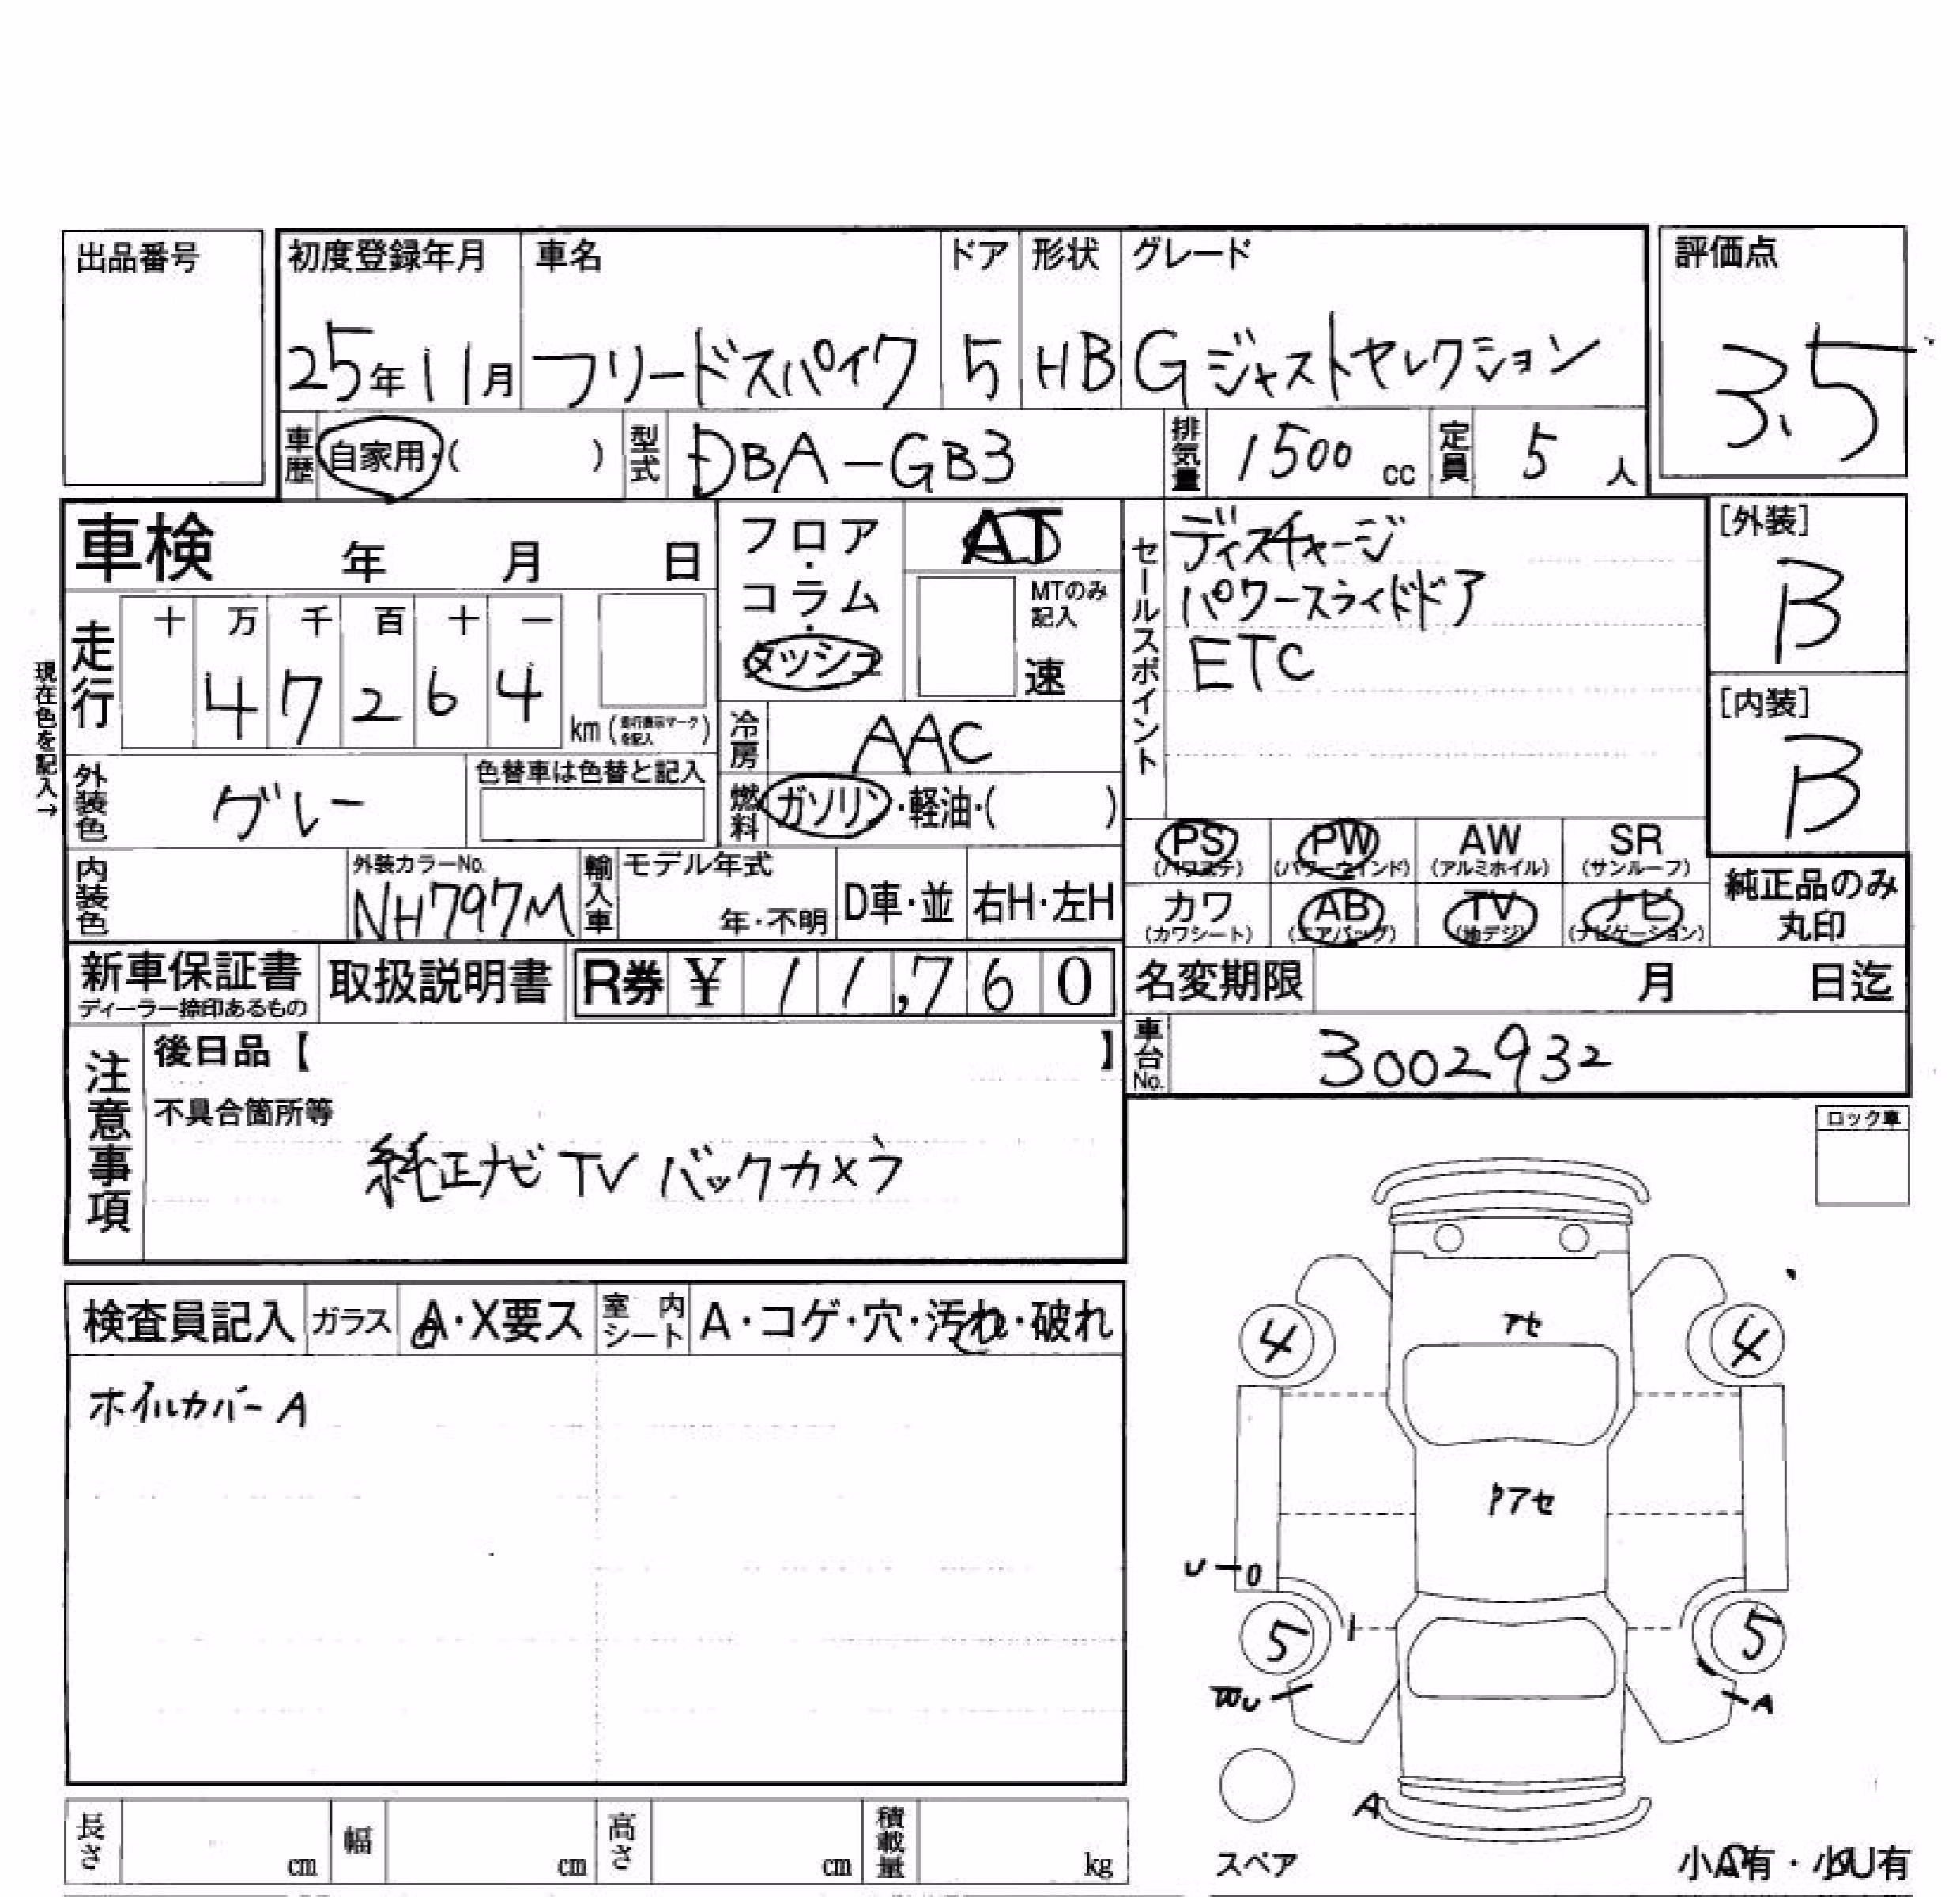 出品番号
初度登録年月 車名 ドア 形状 グレード
25年11月 フリードスパイク 5 HB Gジャストセレクション
評価点
3.5
車歴 自家用・( ) 型式 DBA-GB3 排気量 1500 cc 定員 5 人
車検 年 月 日
フロア・コラム・ダッシュ
AT
MTのみ記入
速
セールスポイント
ディスチャージ
パワースライドドア
ETC
[外装]
B
[内装]
B
現在色を記入→
走行 十 万 千 百 十 一
47264 km (走行表示マークを記入)
冷房 AAC
外装色 グレー 色替車は色替と記入
燃料 ガソリン・軽油・( )
PS (パワステ) PW (パワーウィンド) AW (アルミホイル) SR (サンルーフ)
カワ (カワシート) AB (エアバッグ) TV (地デジ) ナビ (ナビゲーション)
純正品のみ丸印
内装色 外装カラーNo. NH797M 輸入車 モデル年式 年・不明 D車・並 右H・左H
新車保証書 ディーラー捺印あるもの 取扱説明書 R券 ¥ 11,760
名変期限 月 日迄
車台No. 3002932
注意事項
後日品【 】
不具合箇所等
純正ナビ TV バックカメラ
ロック車
検査員記入 ガラス A・X要ス 室内シート A・コゲ・穴・汚れ・破れ
ホイルカバーA
アセ
4 4
アセ
U
5 5
U A
A
スペア
小A有・小U有
長さ cm 幅 cm 高さ cm 積載量 kg